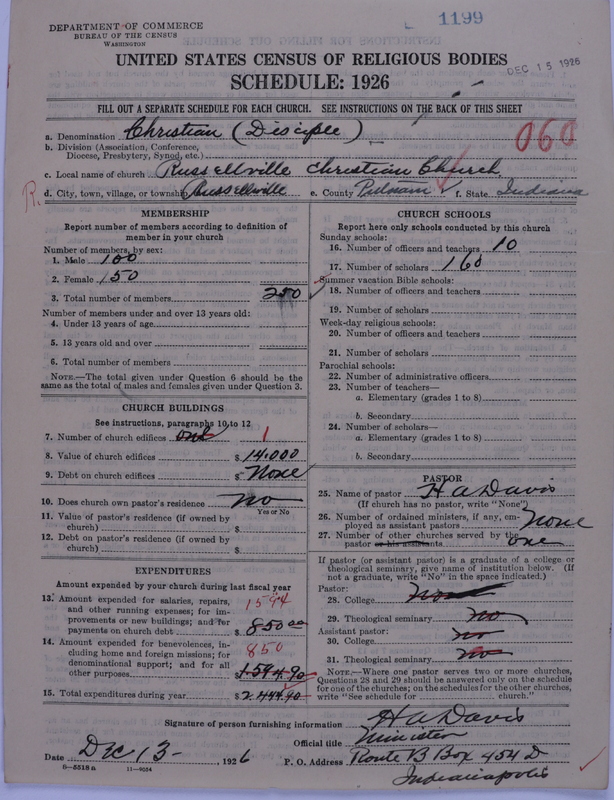 1199
DEPARTMENT OF COMMERCE
BUREAU OF THE CENSUS
WASHINGTON
DEC 15 1926
UNITED STATES CENSUS OF RELIGIOUS BODIES
SCHEDULE: 1926
FILL OUT A SEPARATE SCHEDULE FOR EACH CHURCH. SEE INSTRUCTIONS ON THE BACK OF THIS SHEET
060
a. Denomination Christian (Disciple)
b. Division (Association, Conference,
Diocese, Presbytery, Synod, etc.)
c. Local name of church Russellville Christian Church
R. d. City, town, village, or township Russellville e. County Putnam f. State Indiana
MEMBERSHIP
Report number of members according to definition of
member in your church
Number of members, by sex:
1. Male 100
2. Female 150
3. Total number of members 250
Number of members under and over 13 years old:
4. Under 13 years of age
5. 13 years old and over
6. Total number of members
NOTE.—The total given under Question 6 should be the
same as the total of males and females given under Question 3.
CHURCH BUILDINGS
See instructions, paragraphs 10 to 12
7. Number of church edifices one 1
8. Value of church edifices $ 14.000
9. Debt on church edifices $ None
10. Does church own pastor's residence no
Yes or No
11. Value of pastor's residence (if owned by
church) $
12. Debt on pastor's residence (if owned by
church) $
EXPENDITURES
Amount expended by your church during last fiscal year
13. Amount expended for salaries, repairs,
and other running expenses; for im-
provements or new buildings; and for
payments on church debt 1594 $ 850 00
14. Amount expended for benevolences, in-
cluding home and foreign missions; for
denominational support; and for all
other purposes 850 $ 1594.90
15. Total expenditures during year $ 2444.90
CHURCH SCHOOLS
Report here only schools conducted by this church
Sunday schools:
16. Number of officers and teachers 10
17. Number of scholars 160
Summer vacation Bible schools:
18. Number of officers and teachers
19. Number of scholars
Week-day religious schools:
20. Number of officers and teachers
21. Number of scholars
Parochial schools:
22. Number of administrative officers
23. Number of teachers—
a. Elementary (grades 1 to 8)
b. Secondary
24. Number of scholars—
a. Elementary (grades 1 to 8)
b. Secondary
PASTOR
25. Name of pastor H A Davis
(If church has no pastor, write "None")
26. Number of ordained ministers, if any, em-
ployed as assistant pastors none
27. Number of other churches served by the
pastor or his assistants one
If pastor (or assistant pastor) is a graduate of a college or
theological seminary, give name of institution below. (If
not a graduate, write "No" in the space indicated.)
Pastor:
28. College
29. Theological seminary no
Assistant pastor:
30. College no
31. Theological seminary no
NOTE.—Where one pastor serves two or more churches,
Questions 28 and 29 should be answered only on the schedule
for one of the churches; on the schedules for the other churches,
write "See schedule for church."
Signature of person furnishing information H A Davis
Official title Minister
Date Dec 13- , 1926 P. O. Address Route B Box 454 D
Indianapolis
8—5518 a 11—9054